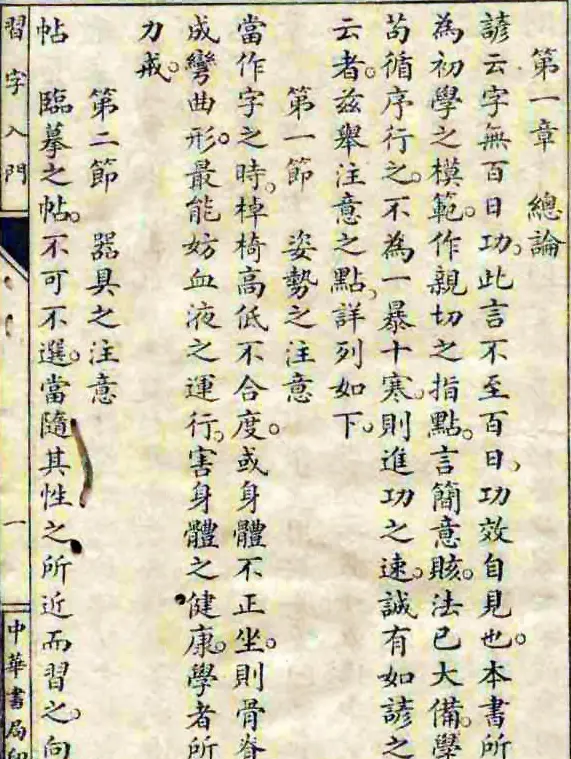 第一章 總論
諺云字無百日功。此言不至百日、功效自見也。本書所
為初學之模範。作親切之指點。言簡意賅。法已大備。學
苟循序行之。不為一暴十寒。則進功之速。誠有如諺之
云者。茲舉注意之點、詳列如下。
第一節 姿勢之注意
當作字之時。棹椅高低不合度。或身體不正坐。則骨脊
成彎曲形。最能妨血液之運行。害身體之健康。學者所
力戒。
第二節 器具之注意
帖 臨摹之帖。不可不選。當隨其性之所近而習之。向
習字入門
一
中華書局印